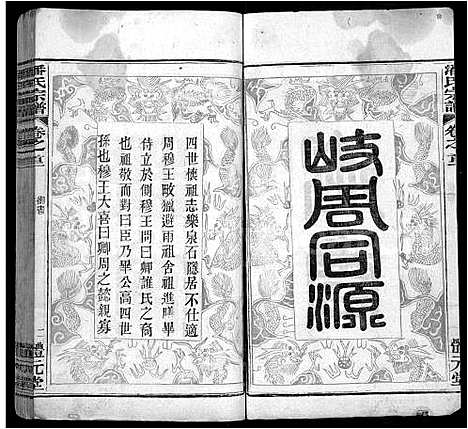 潘氏宗譜
卷之首
體元堂
岐周同源
四世懷祖志樂泉石隱居不仕適
周穆王畋獵避雨祖舍祖進膳畢
侍立於側穆王問曰卿誰氏之裔
也祖敬而對曰臣乃畢公高四世
孫也穆王大喜曰卿周之懿親寡
潘氏宗譜
卷之首
御書
二
體元堂